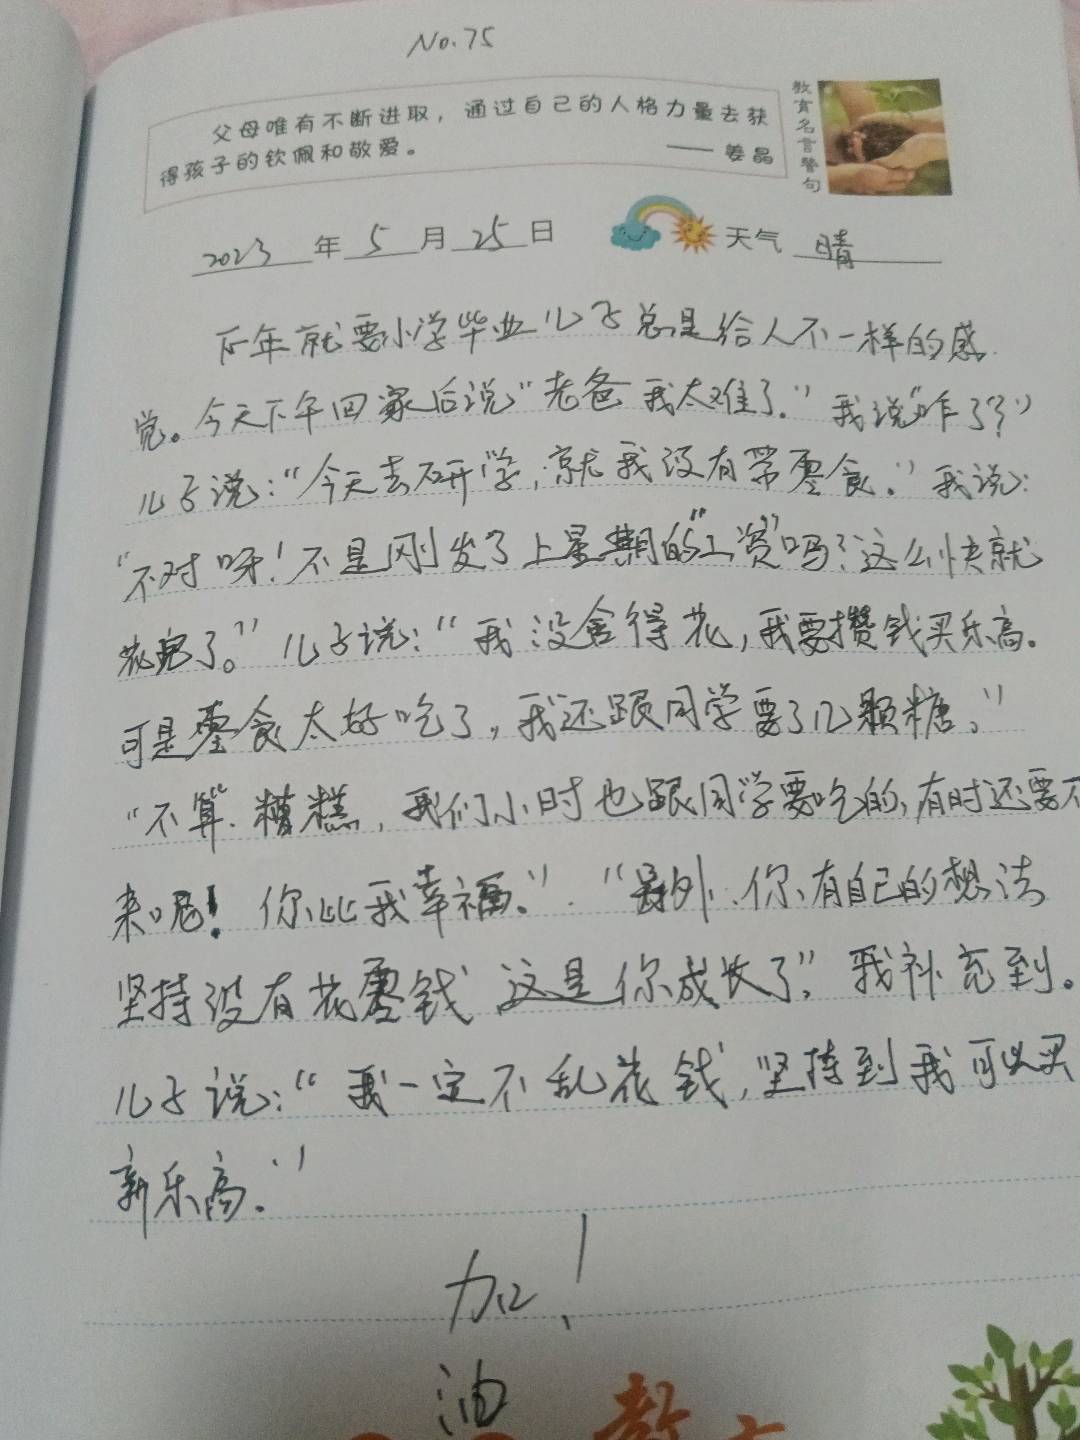 No.75
父母唯有不断进取，通过自己的人格力量去获
得孩子的钦佩和敬爱。 —— 姜晶
教育名言警句
2023年5月25日 天气 晴
下年就要小学毕业儿子总是给人不一样的感
觉。今天下午回家后说"老爸我太难了."我说"咋了?"
儿子说:"今天去研学,就我没有带零食."我说:
"不对呀!不是刚发了上星期的"工资"吗?这么快就
花完了。"儿子说:"我没舍得花,我要攒钱买乐高。
可是零食太好吃了,我还跟同学要了几颗糖."
"不算糟糕,我们小时也跟同学要吃的,有时还要不
来呢!你比我幸福.""另外.你有自己的想法
坚持没有花零钱这是你成长了",我补充到。
儿子说:"我一定不乱花钱,坚持到我可以买
新乐高."
加!
油
教